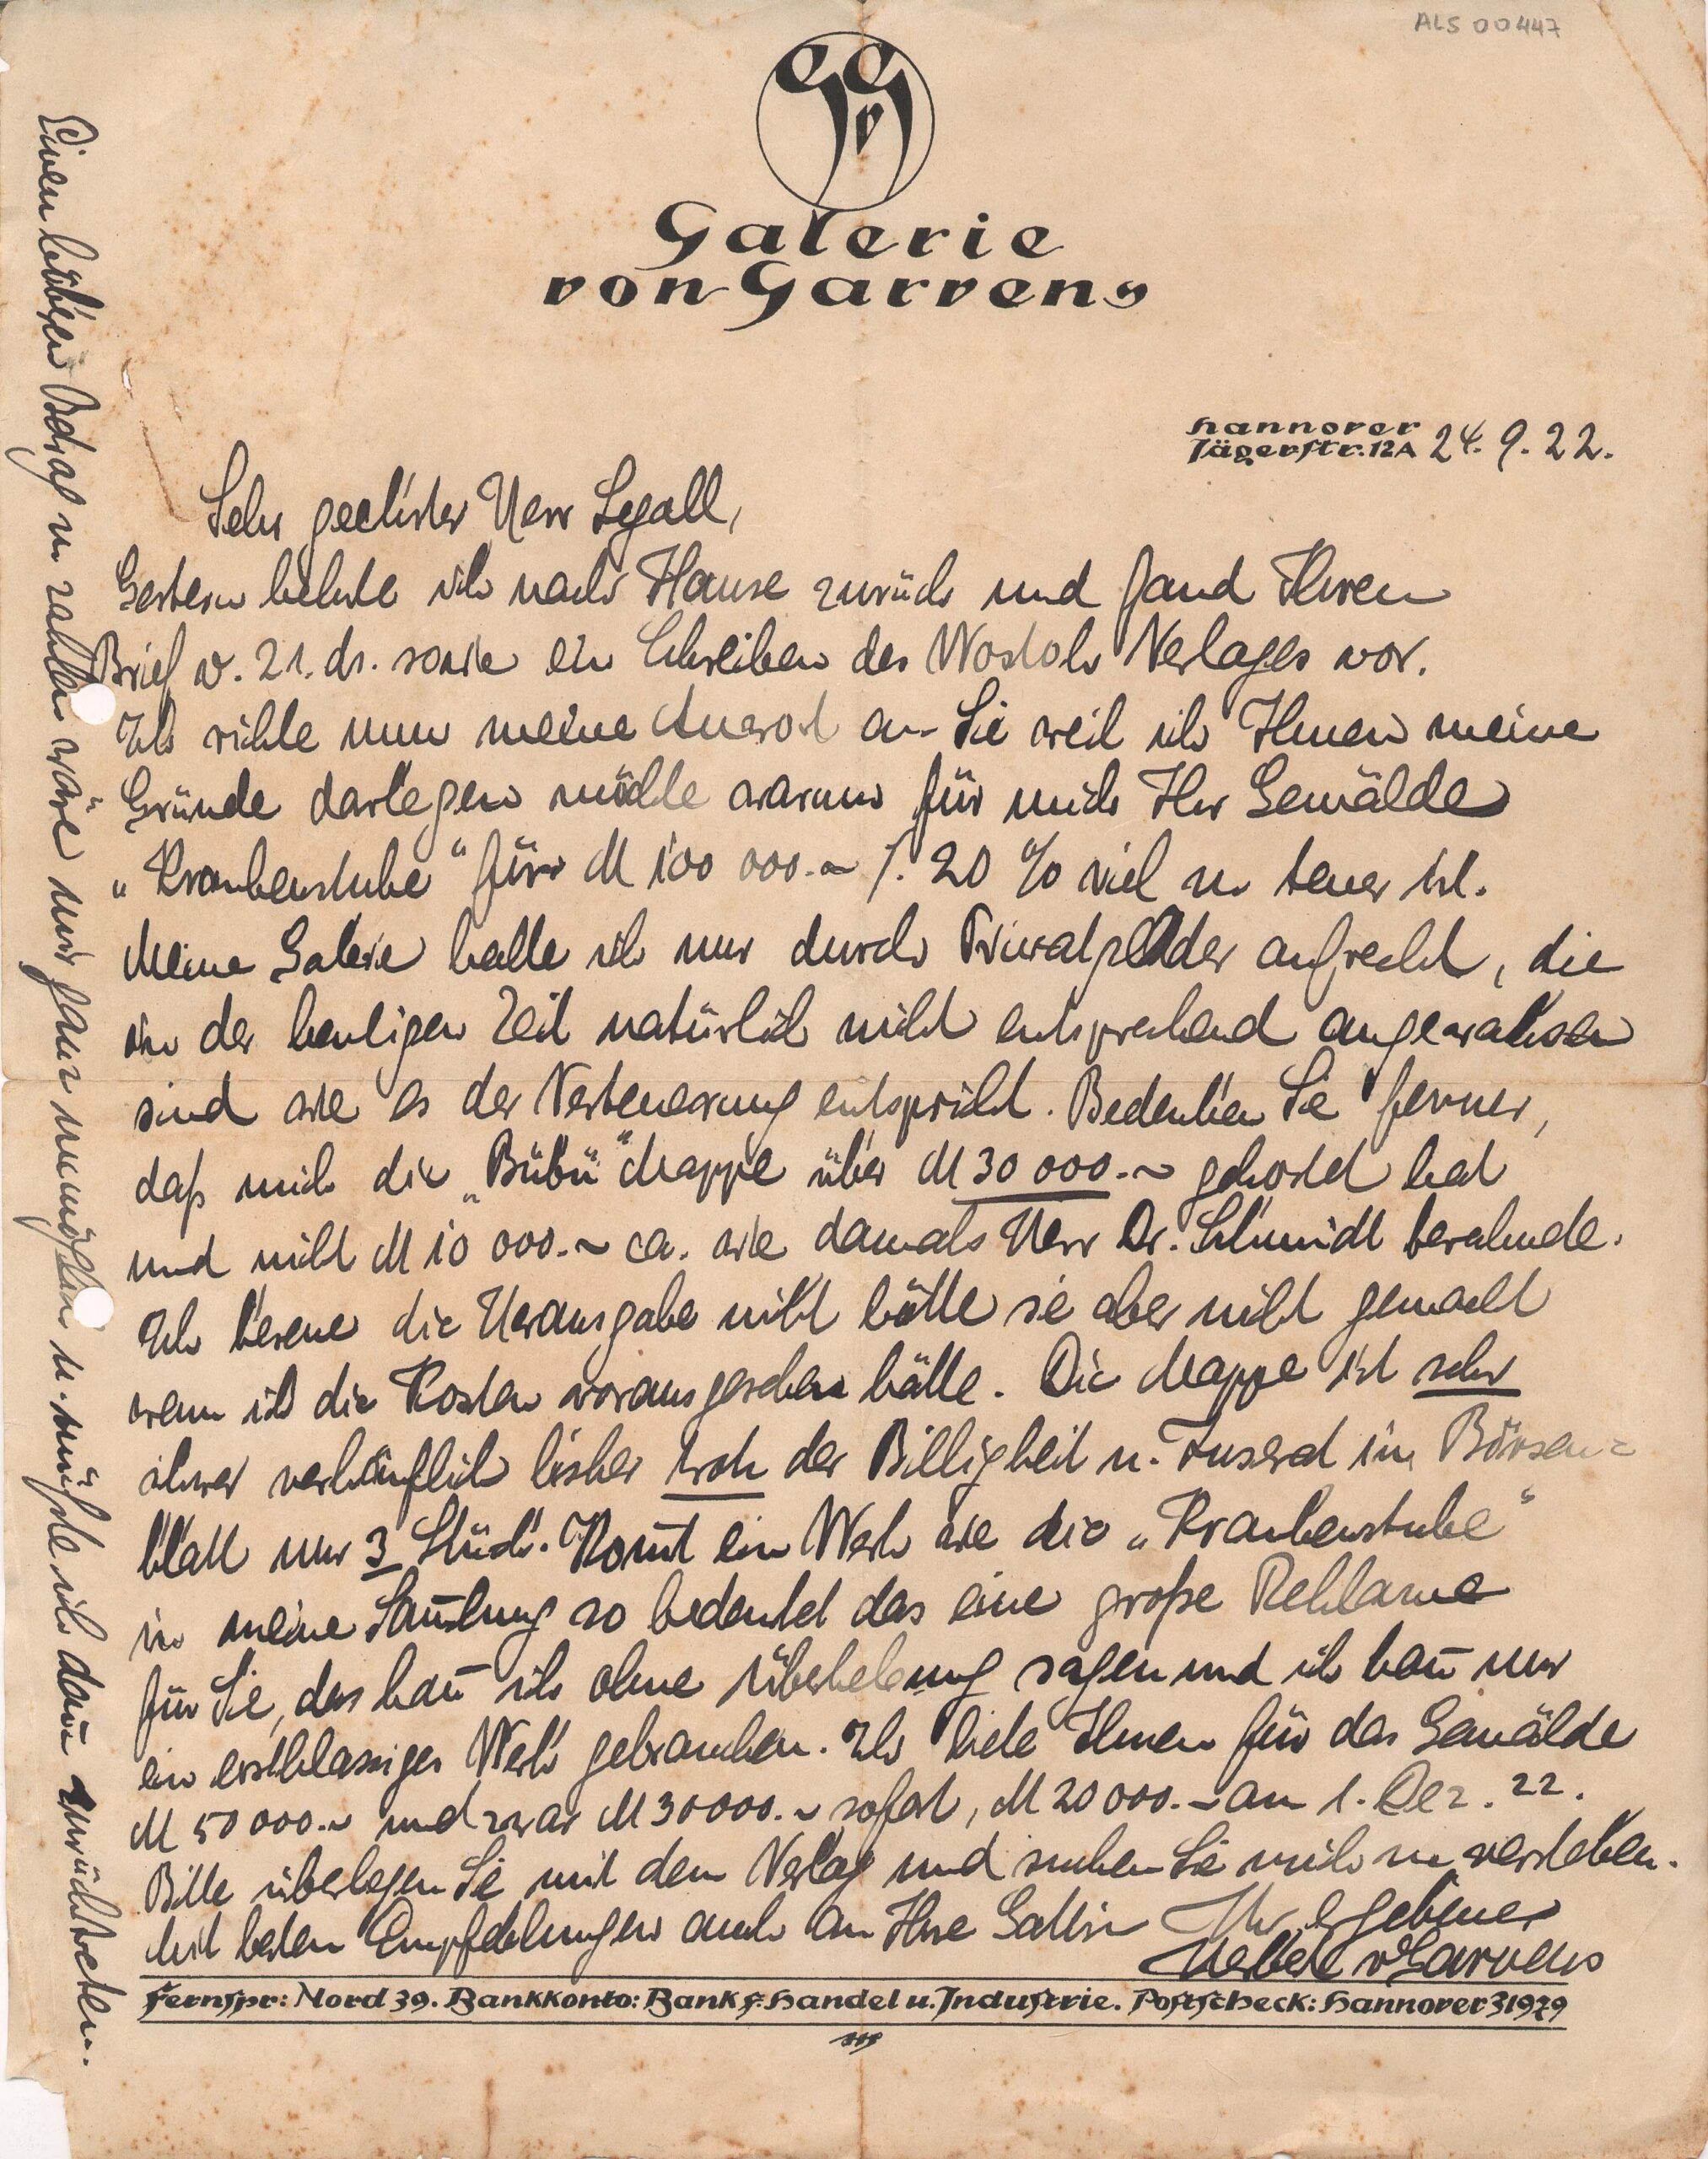 ALS 00447
GvG
Galerie
von Garvens
Hannover
Jägerstr. 12A 24. 9. 22.
Sehr geehrter Herr Segall,
Gestern kehrte ich nach Hause zurück und fand Ihren
Brief v. 21. ds. sowie ein Schreiben des Wostok Verlages vor.
Ich richte nun meine Antwort an Sie weil ich Ihnen meine
Gründe darlegen möchte warum für mich Ihr Gemälde
„Krankenstube“ für M 100 000.– ./. 20 % viel zu teuer ist.
Meine Galerie halte ich nur durch Privatgelder aufrecht, die
in der heutigen Zeit natürlich nicht entsprechend angewachsen
sind wie es der Verteuerung entspricht. Bedenken Sie ferner,
daß mich die „Bübü“ Mappe über M 30 000.– gekostet hat
und nicht M 10 000.– ca. wie damals Herr Dr. Schmidt berechnete.
Ich bereue die Herausgabe nicht hätte sie aber nicht gemacht
wenn ich die Kosten vorausgesehen hätte. Die Mappe ist sehr
schwer verkäuflich bisher trotz der Billigkeit u. Inserat im Börsen=
blatt nur 3 Stück. Kom̄t ein Werk wie die „Krankenstube“
in meine Sam̄lung so bedeutet das eine große Reklame
für Sie, das kan̄ ich ohne Überhebung sagen und ich kan̄ nur
ein erstklassiges Werk gebrauchen. Ich biete Ihnen für das Gemälde
M 50 000.– und zwar M 30000.– sofort, M 20 000.– am 1. Dez. 22.
Bitte überlegen Sie mit dem Verlag und suchen Sie mich zu verstehen.
Mit besten Empfehlungen auch an Ihre Gattin Ihr ergebener
Herbert vGarvens
Fernspr: Nord 39. Bankkonto: Bank f. Handel u. Industrie. Postscheck: Hannover 31929
Einen höheren Betrag zu zahlen wäre mir ganz unmöglich u. müßte ich dan̄ zurücktreten.